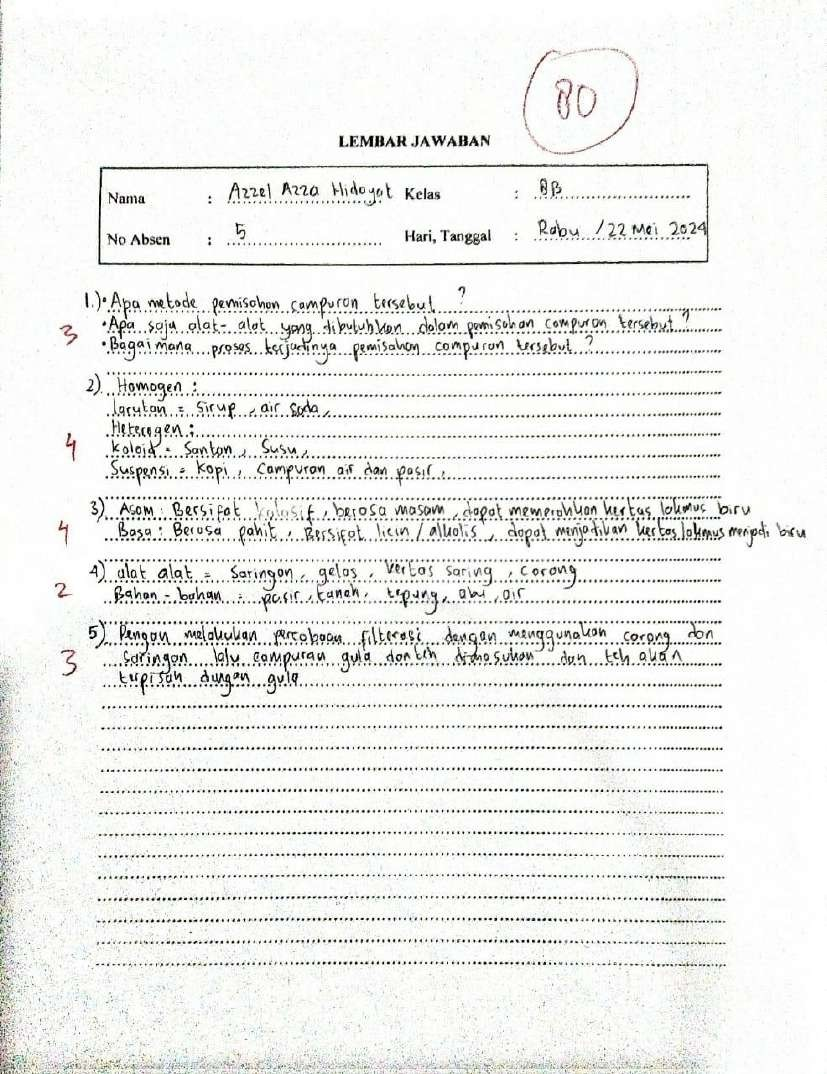 80
LEMBAR JAWABAN
Nama : Azzel Azza Hidayat Kelas : 8B
No Absen : 5 Hari, Tanggal : Rabu / 22 Mei 2024
1.) • Apa metode pemisahan campuran tersebut ?
3 • Apa saja alat-alat yang dibutuhkan dalam pemisahan campuran tersebut ?
• Bagaimana proses terjadinya pemisahan campuran tersebut ?
2) Homogen :
larutan = Sirup, air soda,
Heterogen :
4 koloid = Santan, Susu,
Suspensi = Kopi, Campuran air dan pasir,
3) Asam : Bersifat , berasa masam, dapat memerahkan kertas lakmus biru
4 Basa : Berasa pahit, Bersifat licin / alkalis, dapat menjadikan kertas lakmus menjadi biru
4) alat alat = Saringan, gelas, kertas saring, corong
2 Bahan-bahan = pasir, tanah, tepung, abu, air
5) Dengan melakukan percobaan filterasi dengan menggunakan corong dan
3 saringan lalu campuran gula dan teh dimasukan dan teh akan
terpisah dengan gula